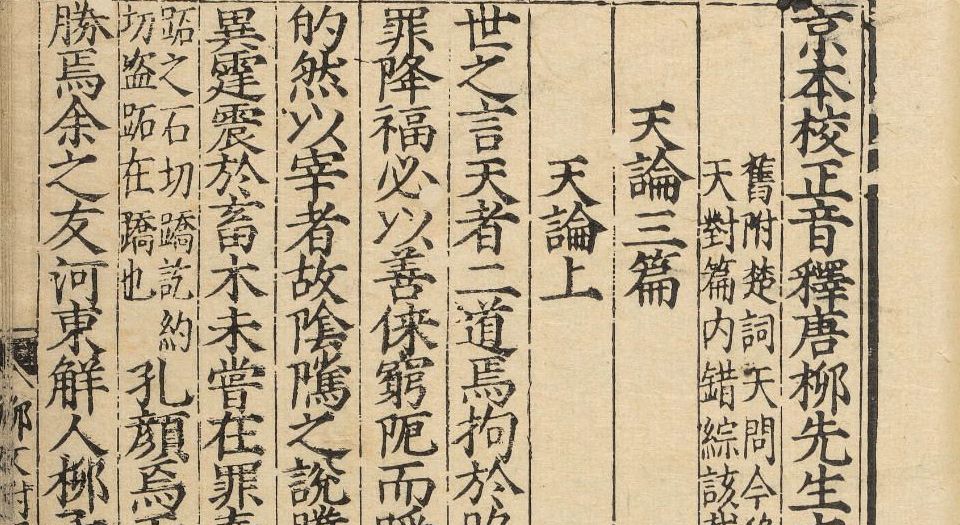 京本校正音釋唐柳先生
舊附楚詞天問今
天對篇內錯綜該
天論三篇
天論上
世之言天者二道焉拘於
罪降福必以善倈窮阨而
的然以宰者故隂隲之說
異霆震於畜木未嘗在罪
跖之石切蹻訖約
切盜跖在蹻也
孔顔焉
勝焉余之友河東解人柳
柳文附